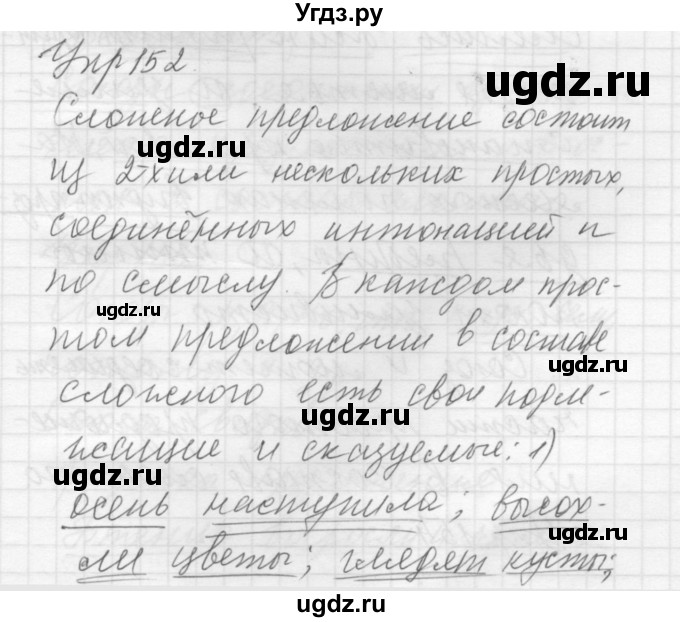 Угдз.ру
Упр 152.
Сложное предложение состоит
из 2-х или нескольких простых,
соединённых интонацией и
по смыслу. В каждом прос-
том предложении в составе
сложного есть свои подле-
жащие и сказуемые: 1)
осень наступила; высох-
ли цветы; глядят кусты;
ugdz.ru
ugdz.ru
ugdz.ru
ugdz.ru
ugdz.ru
ugdz.ru
ugdz.ru
ugdz.ru